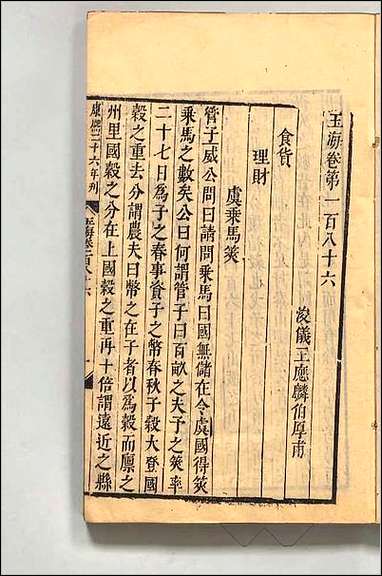 玉海卷第一百八十六
浚儀王應麟伯厚甫
食貨
理財
虞乘馬筴
管子威公問曰請問乘馬曰國無儲在令虞國得筴
乘馬之數矣公曰何謂管子曰百畝之夫子之筴率
二十七日為子之春事資子之幣春秋子穀大登國
穀之重去分謂農夫曰幣之在子者以為穀而廩之
州里國穀之分在上國穀之重再十倍謂遠近之縣
康熙二十六年刋
玉海卷一百八十六
一